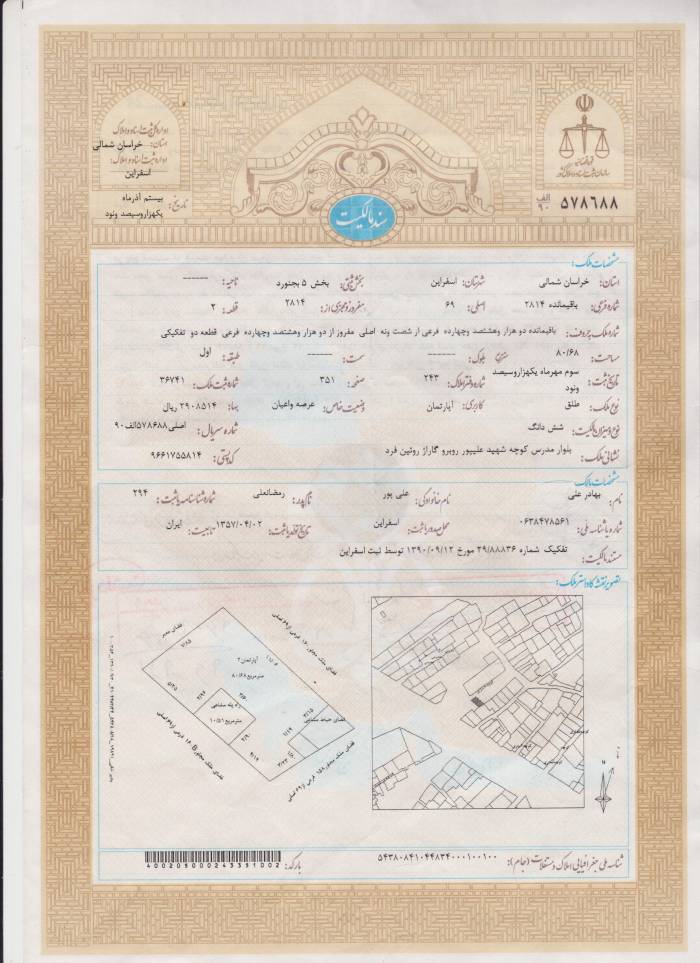 اداره کل ثبت اسناد و املاک
استان: خراسان شمالی
اداره ثبت اسناد و املاک:
اسفراین
تاریخ: بیستم آذرماه
یکهزاروسیصد ونود
قوه قضائیه
سازمان ثبت اسناد و املاک کشور
۵۷۸۶۸۸ الف ۹۰
سند مالکیت
مشخصات ملک:
استان: خراسان شمالی شهرستان: اسفراین بخش ثبتی: بخش ۵ بجنورد ناحیه: ------
شماره فرعی: باقیمانده ۲۸۱۴ اصلی: ۶۹ مفروز و مجزی از: ۲۸۱۴ قطعه: ۲
شماره ملک به حروف: باقیمانده دو هزار وهشتصد وچهارده فرعی از شصت ونه اصلی مفروز از دو هزار وهشتصد وچهارده فرعی قطعه دو تفکیکی
مساحت: ۸۰/۶۸ مترمربع بلوک: ------ سمت: ------ طبقه: اول
تاریخ ثبت: سوم مهرماه یکهزاروسیصد ونود شماره دفتر املاک: ۲۴۳ صفحه: ۳۵۱ شماره ثبت ملک: ۳۶۷۴۱
نوع ملک: طلق کاربری: آپارتمان وضعیت خاص: عرصه واعیان بها: ۲۹۰۸۵۱۴ ریال
نوع و میزان مالکیت: شش دانگ شماره سریال: اصلی۵۷۸۶۸۸الف۹۰
نشانی ملک: بلوار مدرس کوچه شهید علیپور روبرو گاراژ روتین فرد کدپستی: ۹۶۶۱۷۵۵۸۱۴
مشخصات مالک:
نام: بهادر علی نام خانوادگی: علی پور نام پدر: رمضانعلی شماره شناسنامه یا ثبت: ۲۹۴
شماره یا شناسه ملی: ۰۶۳۸۴۷۸۵۶۱ محل صدور یا ثبت: اسفراین تاریخ تولد یا ثبت: ۱۳۵۷/۰۴/۰۲ تابعیت: ایران
مستند مالکیت: تفکیک شماره ۲۹/۸۸۸۳۶ مورخ ۱۳۹۰/۰۹/۱۲ توسط ثبت اسفراین
تصویر نقشه کاداستر ملک:
فضای معبر
آپارتمان ۲
۸۰/۶۸ مترمربع
راه پله مشاعی
۱۰/۵۱ مترمربع
فضای حیاط مشاعی
N
شناسه ملی جغرافیایی املاک و مستغلات (جام): ۵۴۳۸۰۸۴۱۰۴۴۸۳۴۰۰۰۱۰۰۱۰۰
بارکد: 400209000243391002